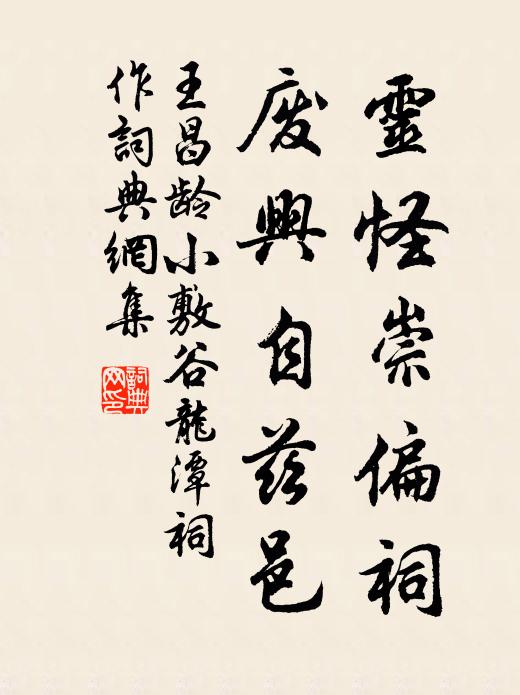 靈怪崇偏祠
废興自茲邑
王昌龄小敷谷龍潭祠
作詞典網集
詞典網印